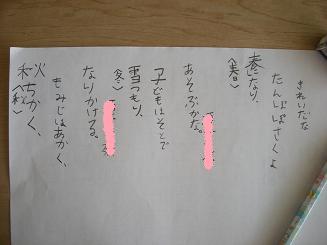 秋ちかく、
〈秋〉
もみじはあかく、
なりかける。
雪つもり、
〈冬〉
子どもはそとで
あそぶかな。
春になり、
〈春〉
たんぽぽさくよ
きれいだな